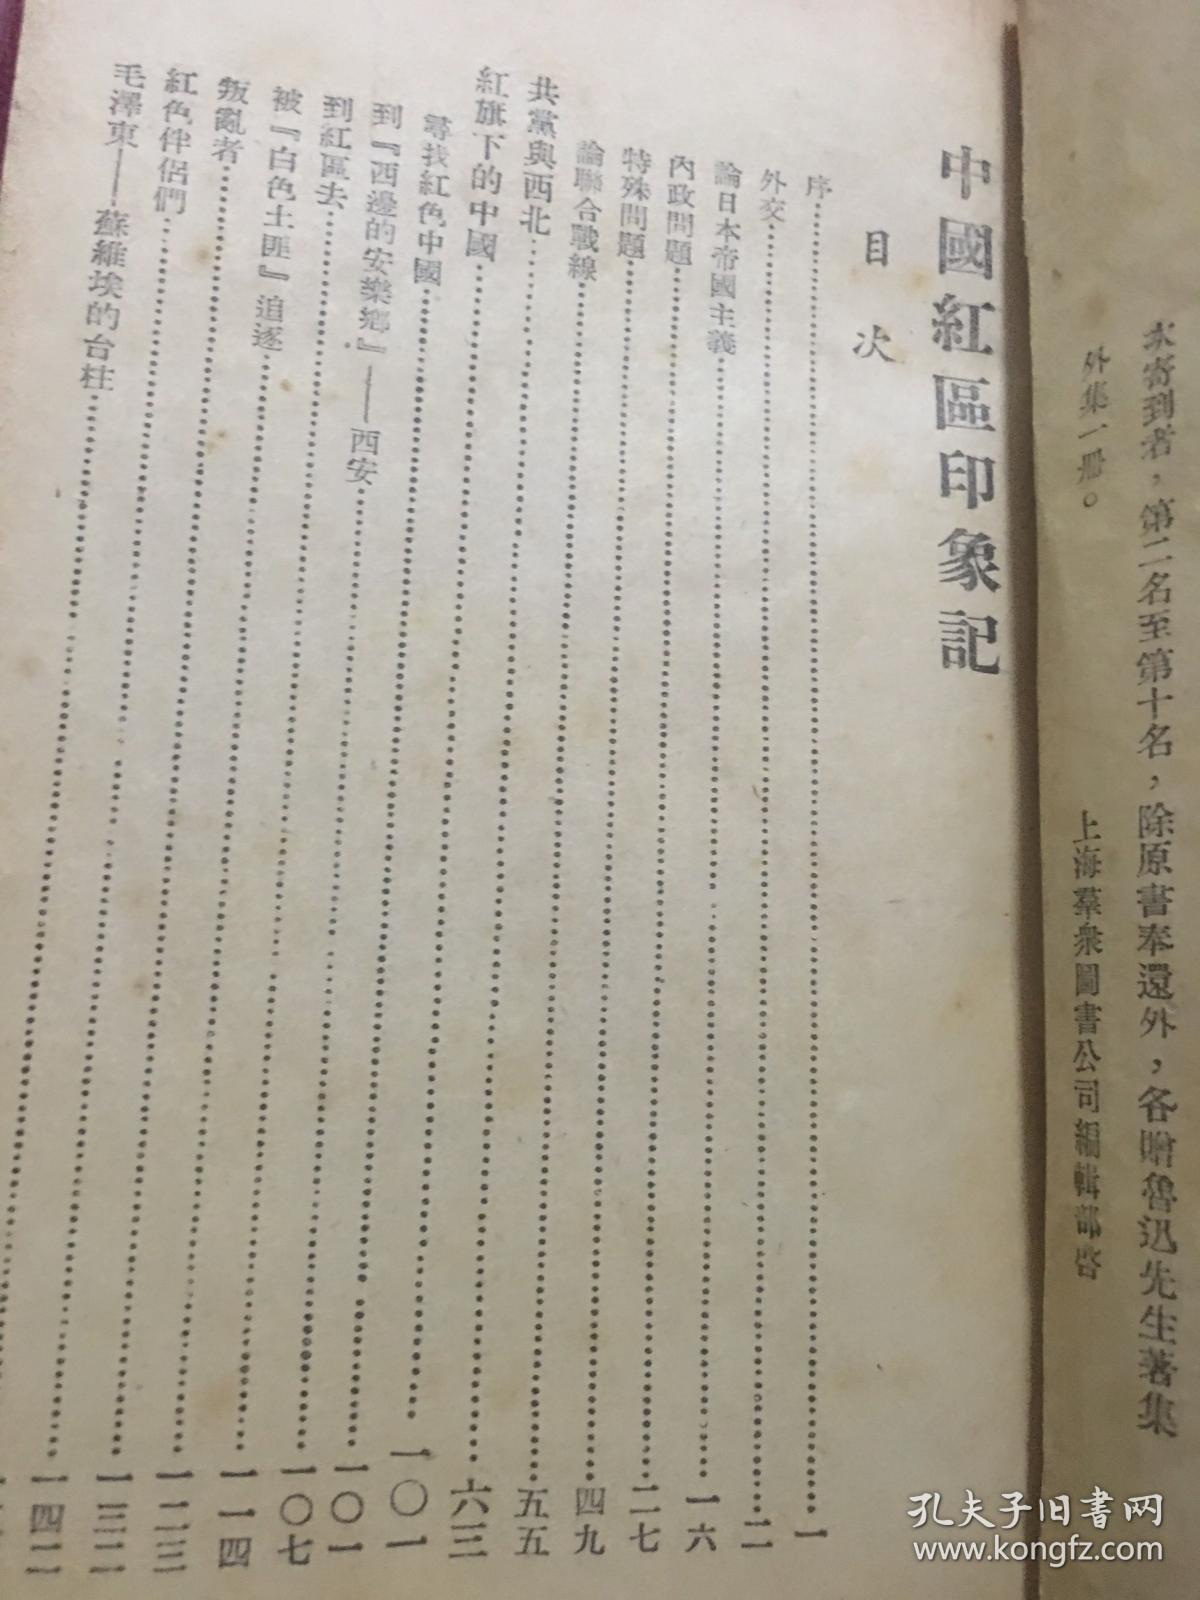 寄到者，第二名至第十名，除原書奉還外，各贈魯迅先生著集
外集一冊。
上海羣衆圖書公司編輯部啓
中國紅區印象記
目次
序……一
外交……二
論日本帝國主義……一六
內政問題……二七
特殊問題……四九
論聯合戰線……五五
共黨與西北……六三
紅旗下的中國……一〇一
尋找紅色中國……一〇一
到『西邊的安樂鄉』——西安……一〇七
到紅區去……一一四
被『白色土匪』追逐……一二三
叛亂者……一三二
紅色伴侶們……一四二
毛澤東——蘇維埃的台柱……
孔夫子旧书网
www.kongfz.com